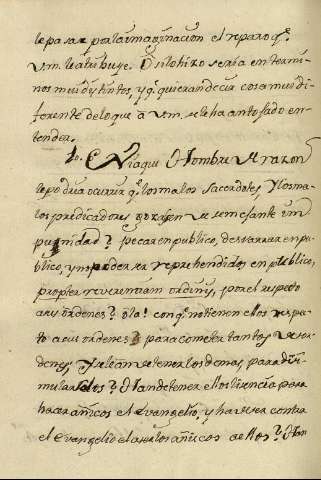 le pasar por la imaginacion el reparo q.e
v.m. le atribuye. O si lo hizo seria en termi-
nos mui dystintos, y q.e quieran decir cosa mui di-
ferente de lo que a v.m. se le ha antojado en-
tender.
10. Y a que Hombre de razon
le podria ocurrir q.e los malos sacerdotes, y los ma-
los predicadores gozasen de semejante im-
punidad? pecar en publico, desbarrar en pu-
blico, y no poder ser reprehendidos en publico,
propter reverentiam ordinis, por el respeto
a sus ordenes? ola! con q.e no tienen ellos respe-
to a sus ordenes para cometer tantos desor-
denes, y le han de tener los demas, para disi-
mularlos? Han de tener ellos licencia para
hacer añicos el Evangelio, y ha de ser contra
el Evangelio el añicos de ellos? Han